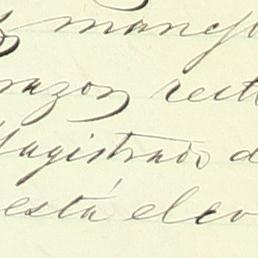 y manejo
razon rect
Magistrado d
está elev